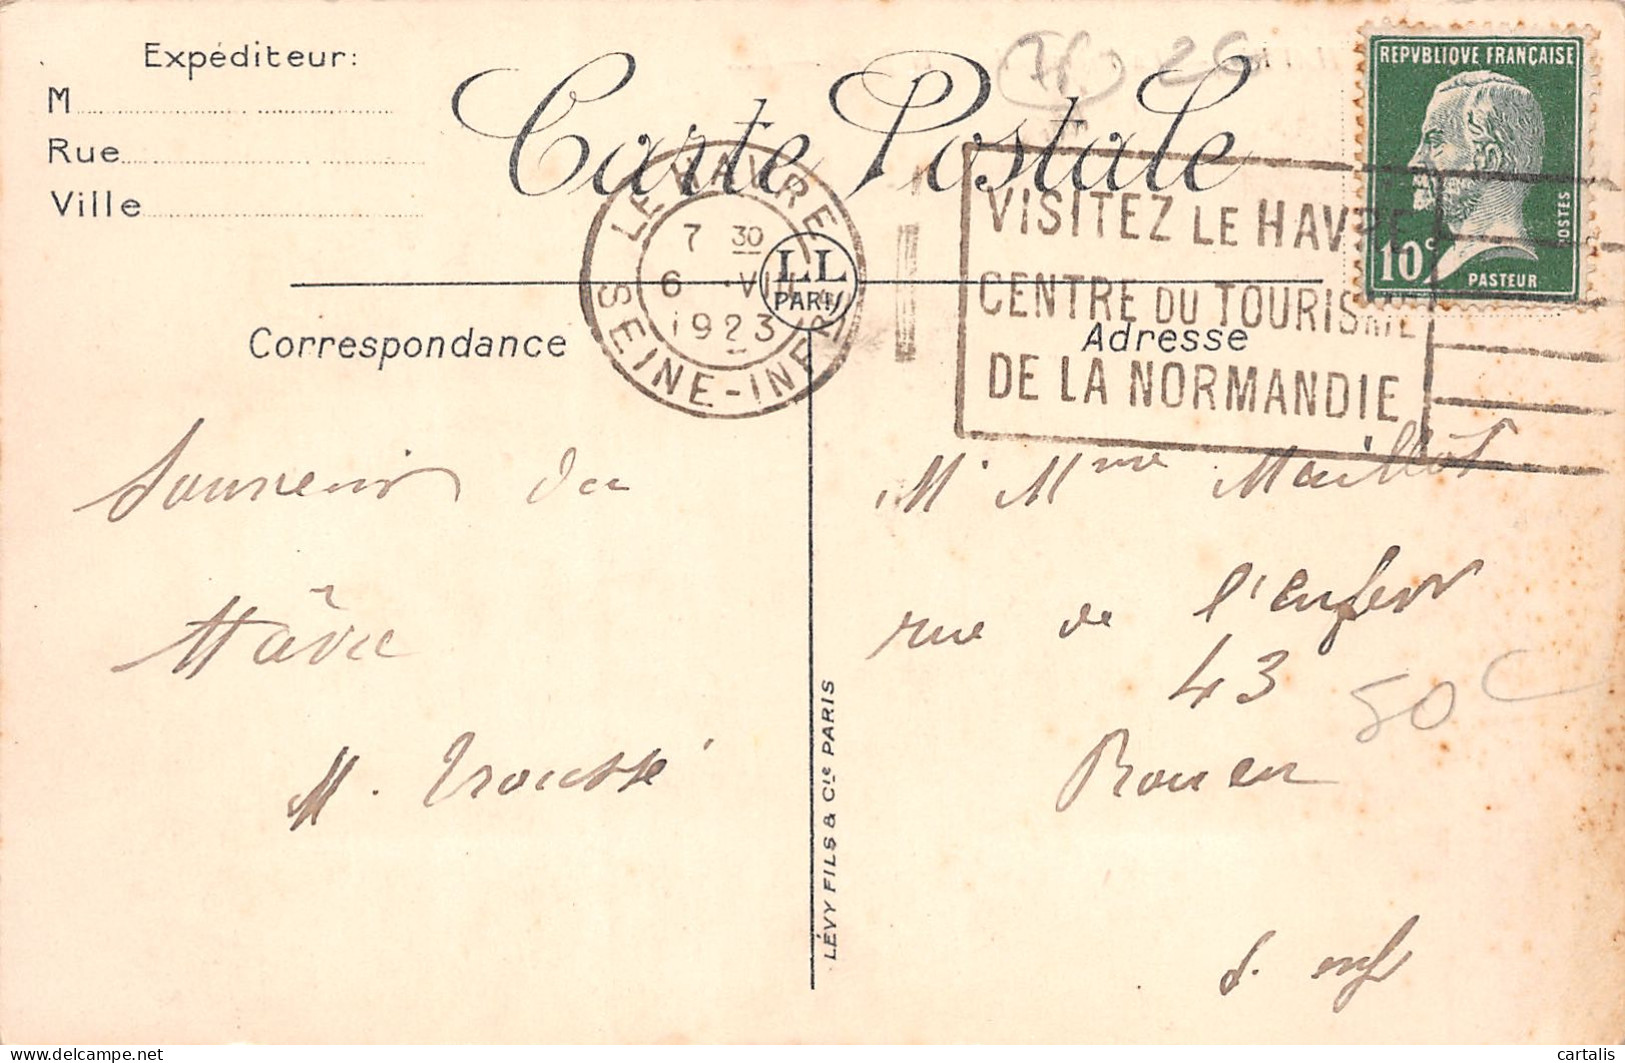 Expéditeur:
M
Rue
Ville
Carte Postale
76 26
REPVBLIQVE FRANÇAISE
10c
POSTES
PASTEUR
LE HAVRE
7 30
6 VIII
1923
SEINE-INFRE
LL
PARIS
VISITEZ LE HAVRE
CENTRE DU TOURISME
DE LA NORMANDIE
Correspondance
Adresse
Souvenir du
Hâvre
M. Trousse
LÉVY FILS & Cie PARIS
M Mme Maillot
rue de l'enfer
43
50 C
Rouen
S. inf
delcampe.net
cartalis